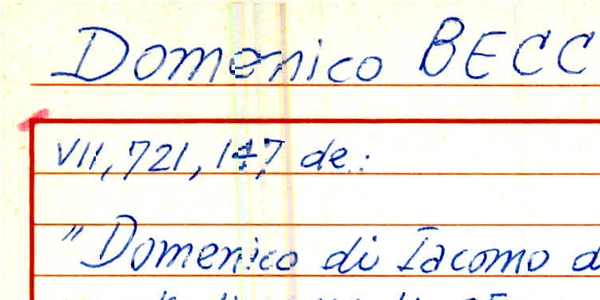 Domenico BECC
VII, 721, 147 de:
"Domenico di Iacomo d